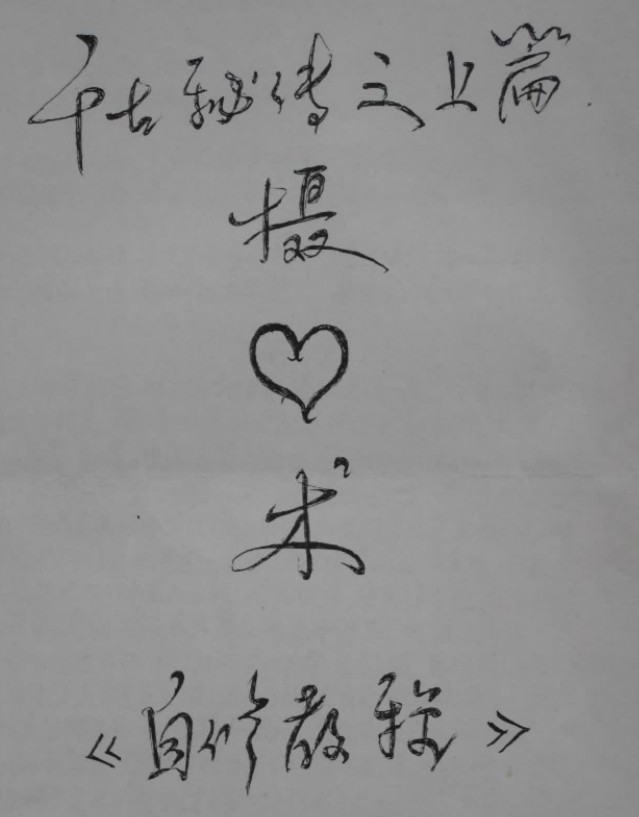 千古秘传之上篇
摄
♡
术
《自修教程》